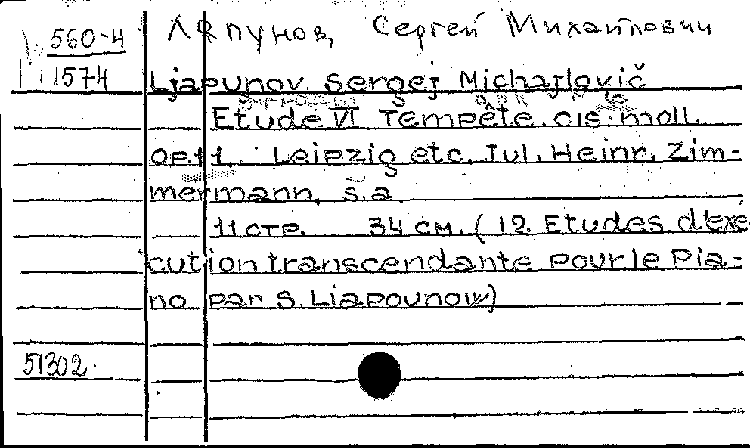 560-4 Ляпунов, Сергей Михайлович
1574 Ljapunov Sergej Michajlovič
Etude VI Tempete. cis-moll.
op.11. Leipzig etc. Jul. Heinr. Zim-
mermann, s.a.
11 стр. 34 см. (12 Etudes d'exé
cution transcendante pour le Pia-
no par S. Liapounow)
51302.